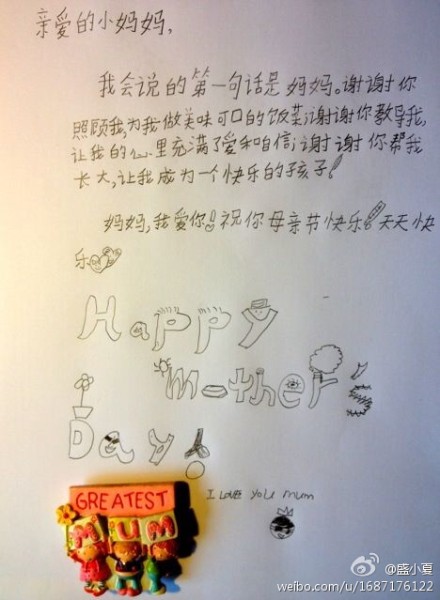 亲爱的小妈妈,
我会说的第一句话是妈妈。谢谢你
照顾我,为我做美味可口的饭菜;谢谢你教导我,
让我的心里充满了爱和自信;谢谢你帮我
长大,让我成为一个快乐的孩子!
妈妈,我爱你!祝你母亲节快乐!天天快
乐
Happy
mother's
Day!
I love you mum
GREATEST
MUM
@盛小夏
weibo.com/u/1687176122